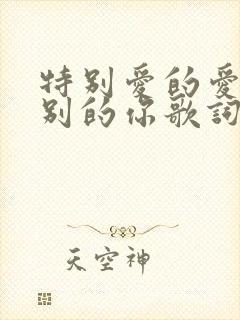 特别爱的爱
别的你歌词
天空神